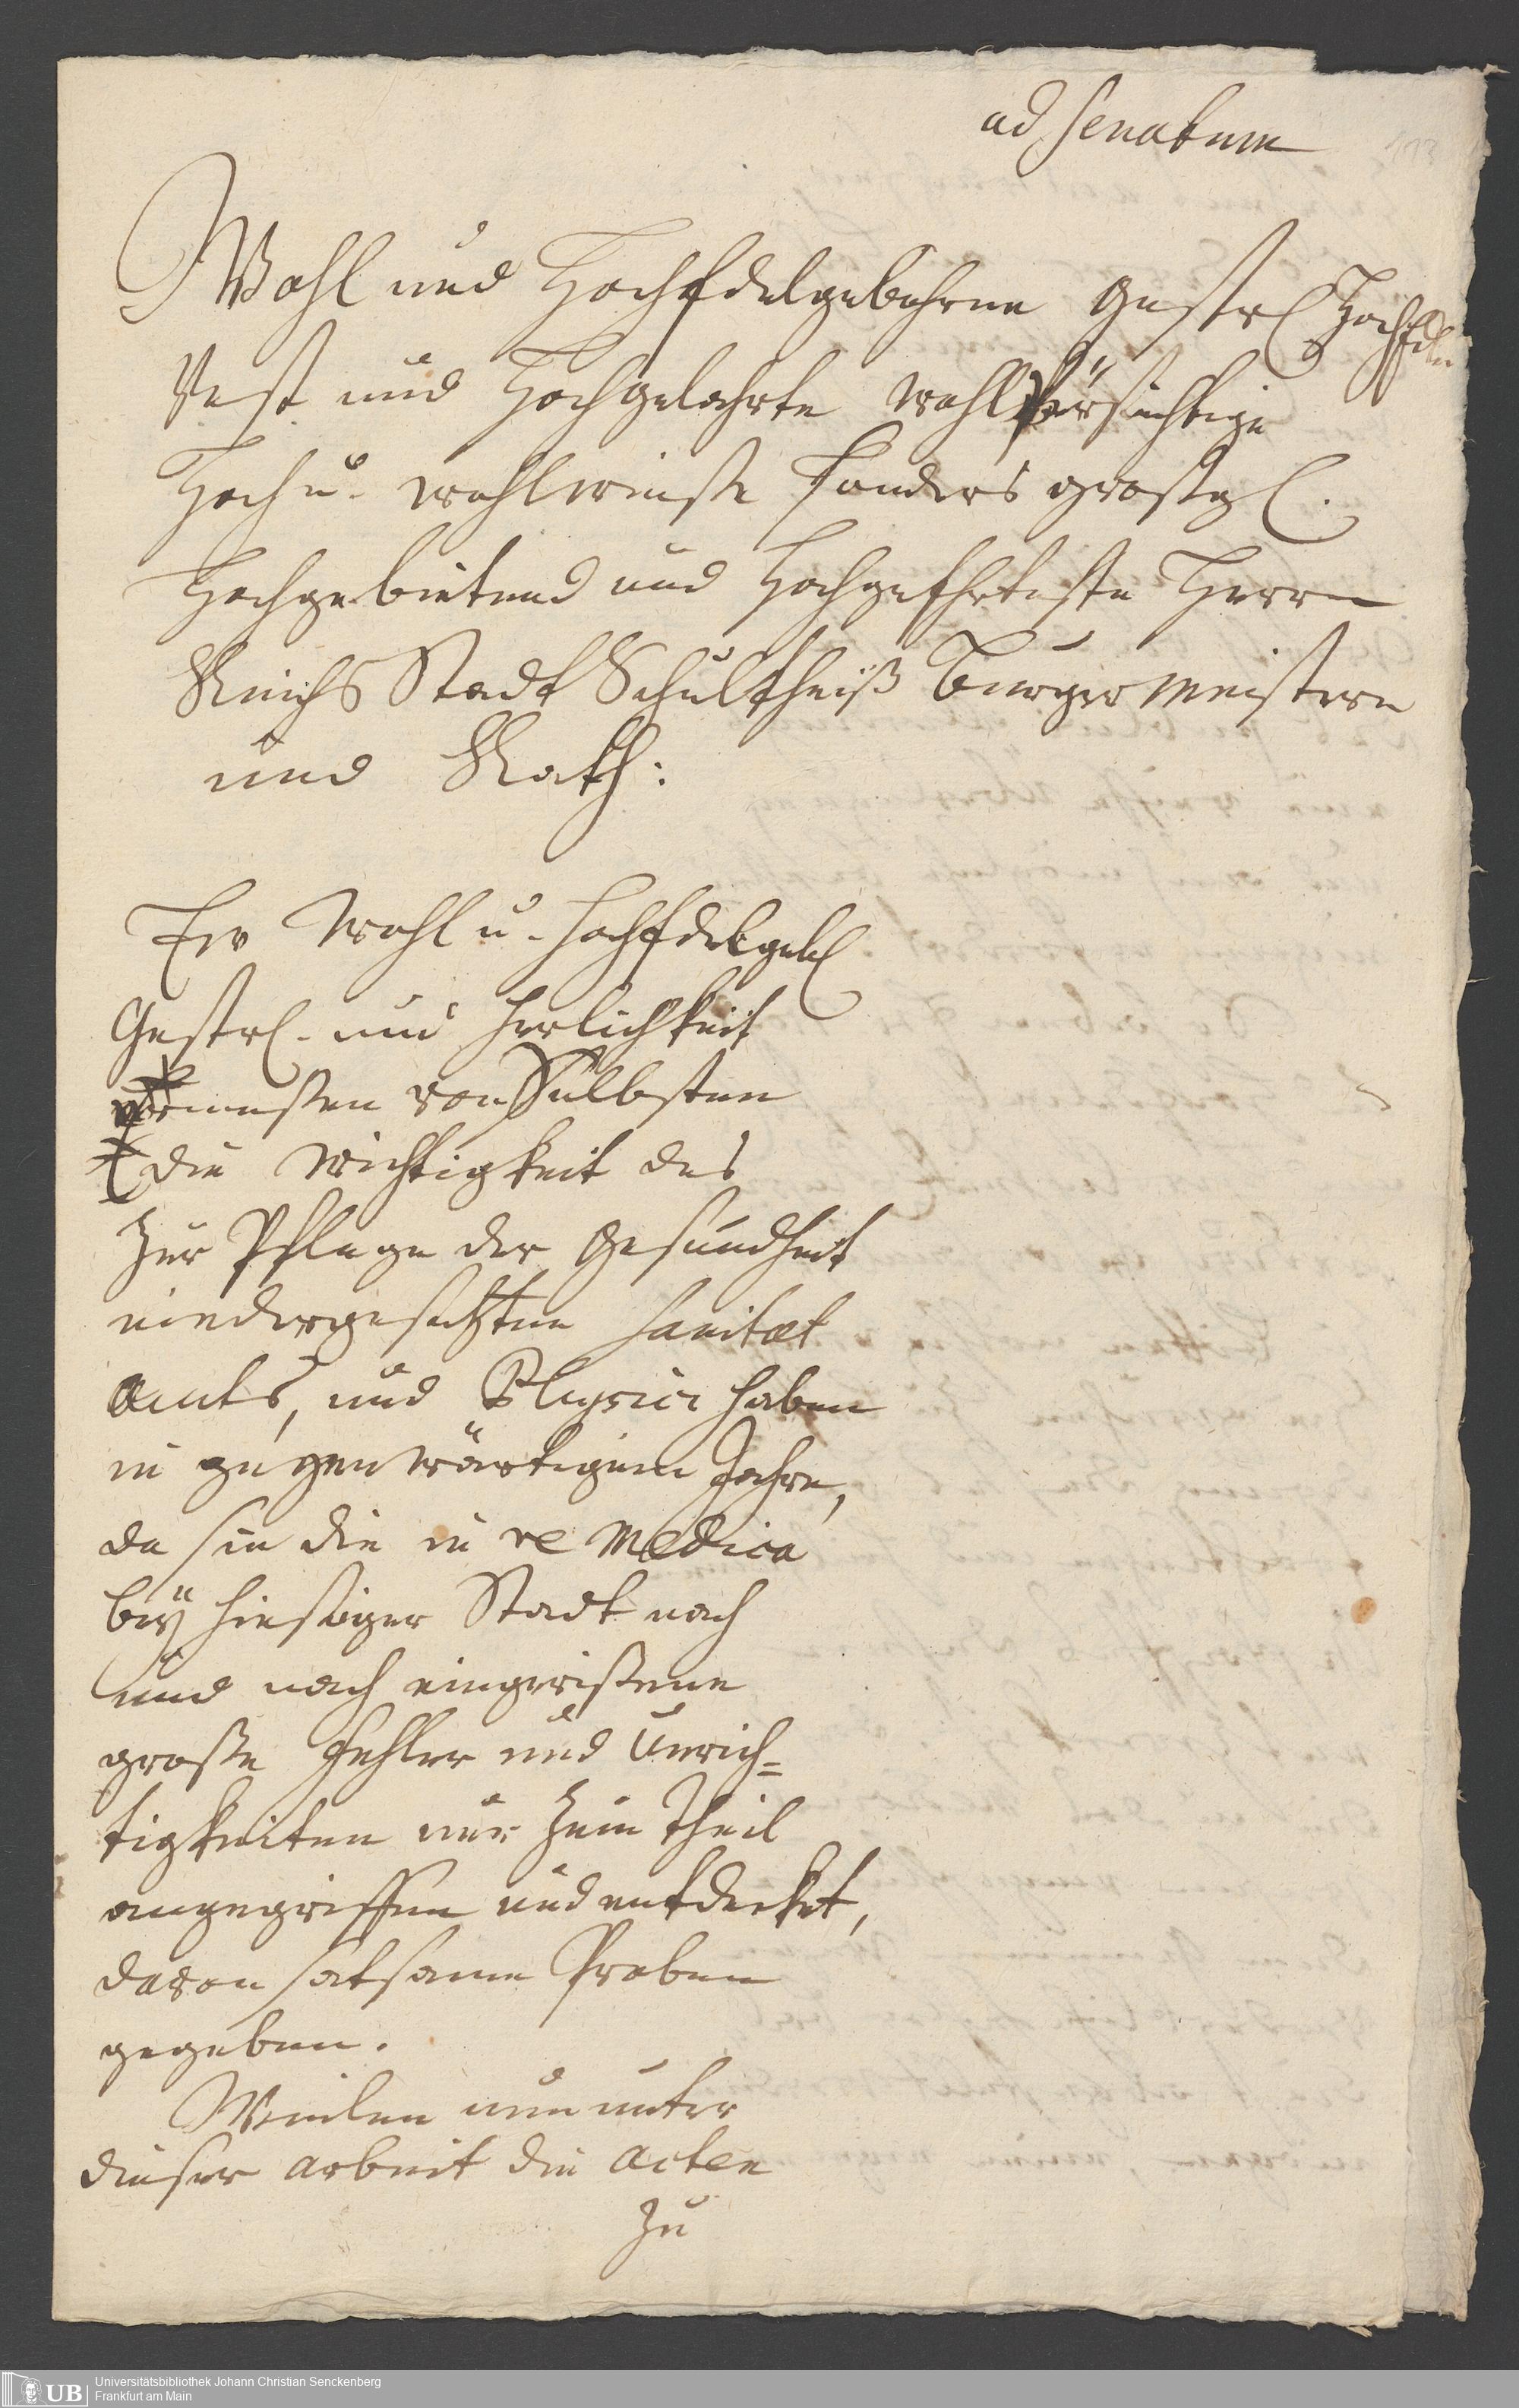 ad Senatum
113
Wohl und HochEdelgebohrne Gestr. HochEdle
Vest und Hochgelahrte Wohlfürsichtige
Hoch u. wohlweiße sonders großg.
Hochgebietend und HochgeEhrteste Herrn
Reichs Stadt Schultheiß Burgermeistere
und Rath:
Ew Wohl u. HochEdelgeb.
Gestr. und Herlichkeit
ermeßen von Sülbsten
die Wichtigkeit des
Zur Pflege der Gesundheit
niedergesetzten Sanitæt
Amts, und Physici haben
in gegenwärtigem Jahre,
da sie die in re Medica
beÿ hiesiger Stadt nach
und nach eingerißene
große Fehler und Unrich=
tigkeiten nur Zum Theil
angegriffen und entdecket,
davon satsame Proben
gegeben.
Weilen nun unter
dieser Arbeit die Acten
Zu
UB
Universitätsbibliothek Johann Christian Senckenberg
Frankfurt am Main